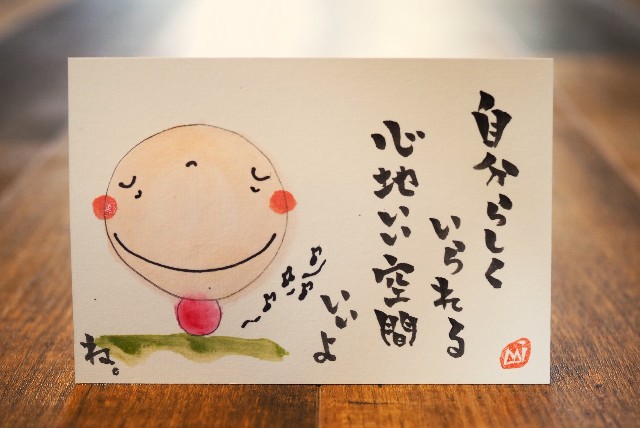 自分らしく
いられる
心地いい空間
いいよ
ね。